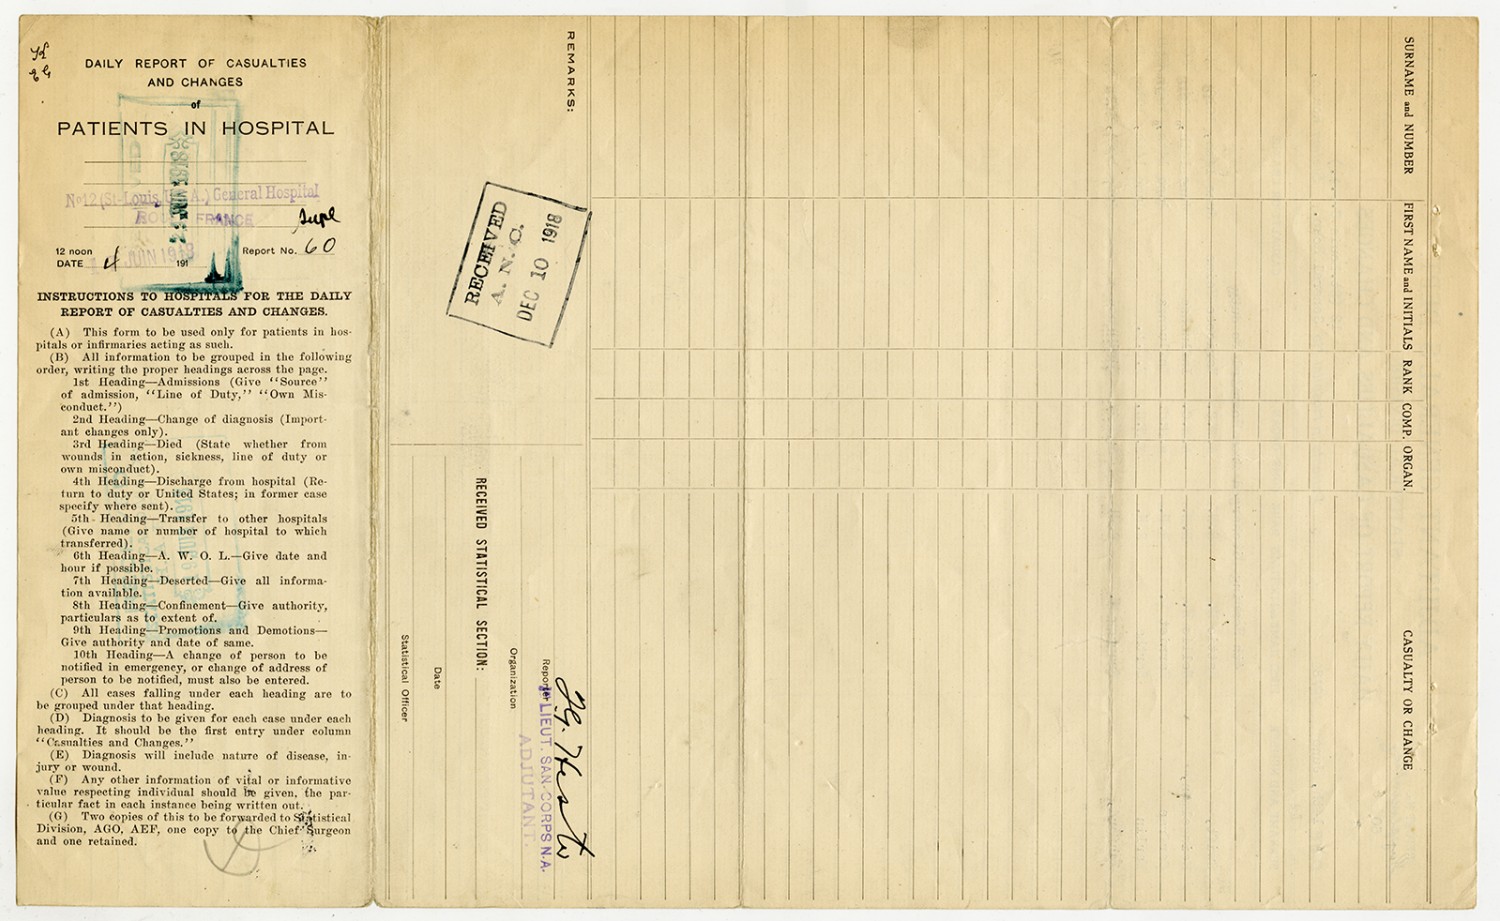 DAILY REPORT OF CASUALTIES
AND CHANGES
of
PATIENTS IN HOSPITAL
No 12 (St. Louis, U.S.A.) General Hospital
FRANCE
12 noon
DATE 4 JUN 1918 191
Report No. 60
INSTRUCTIONS TO HOSPITALS FOR THE DAILY
REPORT OF CASUALTIES AND CHANGES.
(A) This form to be used only for patients in hos-
pitals or infirmaries acting as such.
(B) All information to be grouped in the following
order, writing the proper headings across the page.
1st Heading—Admissions (Give "Source"
of admission, "Line of Duty," "Own Mis-
conduct.")
2nd Heading—Change of diagnosis (Import-
ant changes only).
3rd Heading—Died (State whether from
wounds in action, sickness, line of duty or
own misconduct).
4th Heading—Discharge from hospital (Re-
turn to duty or United States; in former case
specify where sent).
5th Heading—Transfer to other hospitals
(Give name or number of hospital to which
transferred).
6th Heading—A. W. O. L.—Give date and
hour if possible.
7th Heading—Deserted—Give all informa-
tion available.
8th Heading—Confinement—Give authority,
particulars as to extent of.
9th Heading—Promotions and Demotions—
Give authority and date of same.
10th Heading—A change of person to be
notified in emergency, or change of address of
person to be notified, must also be entered.
(C) All cases falling under each heading are to
be grouped under that heading.
(D) Diagnosis to be given for each case under each
heading. It should be the first entry under column
"Casualties and Changes."
(E) Diagnosis will include nature of disease, in-
jury or wound.
(F) Any other information of vital or informative
value respecting individual should be given, the par-
ticular fact in each instance being written out.
(G) Two copies of this to be forwarded to Statistical
Division, AGO, AEF, one copy to the Chief Surgeon
and one retained.
REMARKS:
RECEIVED
A. N. C.
DEC 10 1918
Reporter
LIEUT. SAN. CORPS N.A.
ADJUTANT.
Organization
RECEIVED STATISTICAL SECTION:
Date
Statistical Officer
SURNAME and NUMBER
FIRST NAME and INITIALS
RANK
COMP.
ORGAN.
CASUALTY OR CHANGE